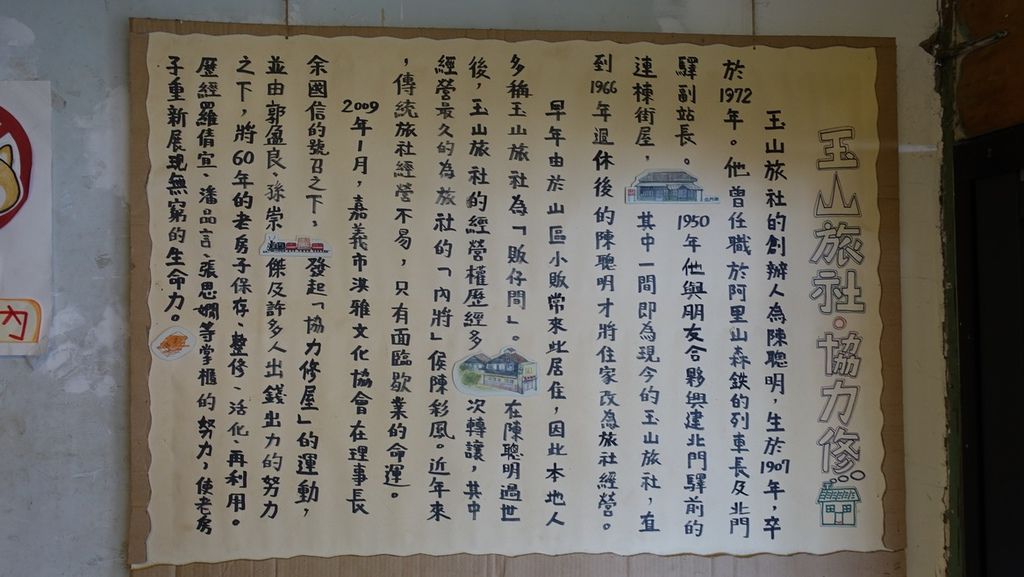 玉山旅社。協力修
玉山旅社的創辦人為陳聰明,生於1907年,卒
於1972年。他曾任職於阿里山森鉄的列車長及北門
驛副站長。1950年他與朋友合夥興建北門驛前的
連棟街屋,其中一間即為現今的玉山旅社,直
到1966年退休後的陳聰明才將住家改為旅社經營。
早年由於山區小販常來此居住,因此本地人
多稱玉山旅社為「販仔間」。在陳聰明過世
後,玉山旅社的經營權歷經多次轉讓,其中
經營最久的為旅社的「內將」侯陳彩鳳。近年來
,傳統旅社經營不易,只有面臨歇業的命運。
2009年1月,嘉義市洪雅文化協會在理事長
余國信的號召之下,發起「協力修屋」的運動,
並由郭盈良、孫崇傑及許多人出錢出力的努力
之下,將60年的老房子保存、整修、活化、再利用。
歷經羅倩宜、潘品言、張思嫺等掌櫃的努力,使老房
子重新展現無窮的生命力。
內